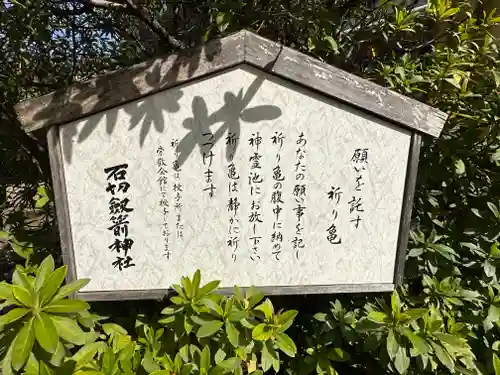 願いを託す
祈り亀
あなたの願い事を記し
祈り亀の腹中に納めて
神霊池にお放し下さい
祈り亀は静かに祈り
つづけます
祈り亀は授与所または
崇敬会館にて授与して居ります
石切劔箭神社